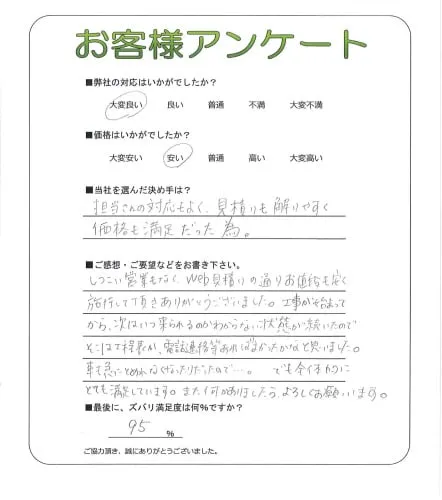 お客様アンケート
■弊社の対応はいかがでしたか?
大変良い 良い 普通 不満 大変不満
■価格はいかがでしたか?
大変安い 安い 普通 高い 大変高い
■当社を選んだ決め手は?
担当さんの対応もよく、見積りも解りやすく
価格も満足だった為。
■ご感想・ご要望などをお書き下さい。
しつこい営業もなく、Web見積りの通りお値段も安く
施行して頂きありがとうございました。工事が始まって
から、次はいつ来られるのかわからない状態が続いたので
そこは工程表か、電話連絡等あればよかったかなと思いました。
車も急にとめれなくなったりだったので…。でも全体的に
とても満足しています。また何かありましたら、よろしくお願いします。
■最後に、ズバリ満足度は何%ですか?
95 %
ご協力頂き、誠にありがとうございました。